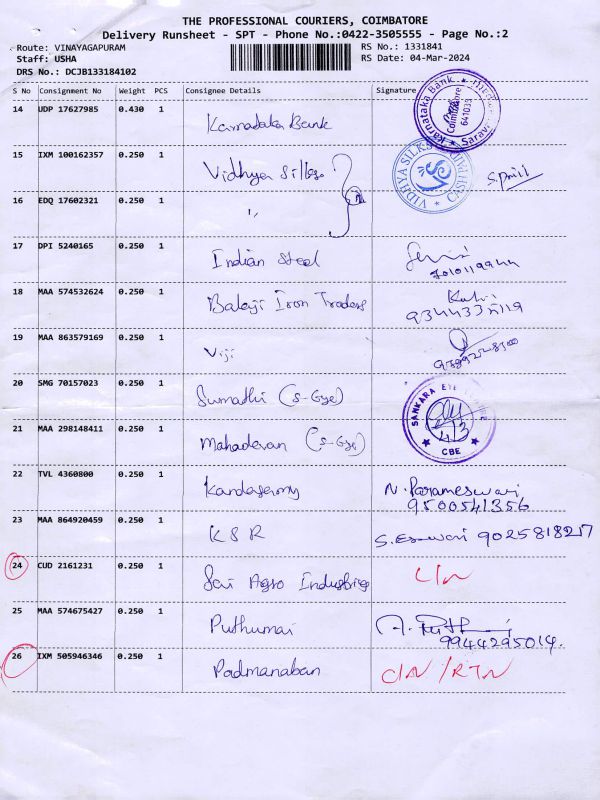 THE PROFESSIONAL COURIERS, COIMBATORE
Delivery Runsheet - SPT - Phone No.:0422-3505555 - Page No.:2
Route: VINAYAGAPURAM RS No.: 1331841
Staff: USHA RS Date: 04-Mar-2024
DRS No.: DCJB133184102
S No Consignment No Weight PCS Consignee Details Signature
14 UDP 17627985 0.430 1 Karnataka Bank
Karnataka Bank Coimbatore 641035
15 IXM 100162357 0.250 1 Vidhya Silks
VIDHYA SILKS CASH
16 EDQ 17602321 0.250 1 "
17 DPI 5240165 0.250 1 Indian Steel
18 MAA 574532624 0.250 1 Balaji Iron Traders
19 MAA 863579169 0.250 1 Viji
20 SMG 70157023 0.250 1 Sumathi (S-Eye)
SANKARA EYE CBE
21 MAA 298148411 0.250 1 Mahadevan (S-Eye)
22 TVL 4360800 0.250 1 Kandasamy N. Parameswari
9500541356
23 MAA 864920459 0.250 1 KSR S. Eswari
24 CUD 2161231 0.250 1 Sai Agro Industries
25 MAA 574675427 0.250 1 Puthumai
9944295014.
26 IXM 505946346 0.250 1 Padmanaban C/N / RTN